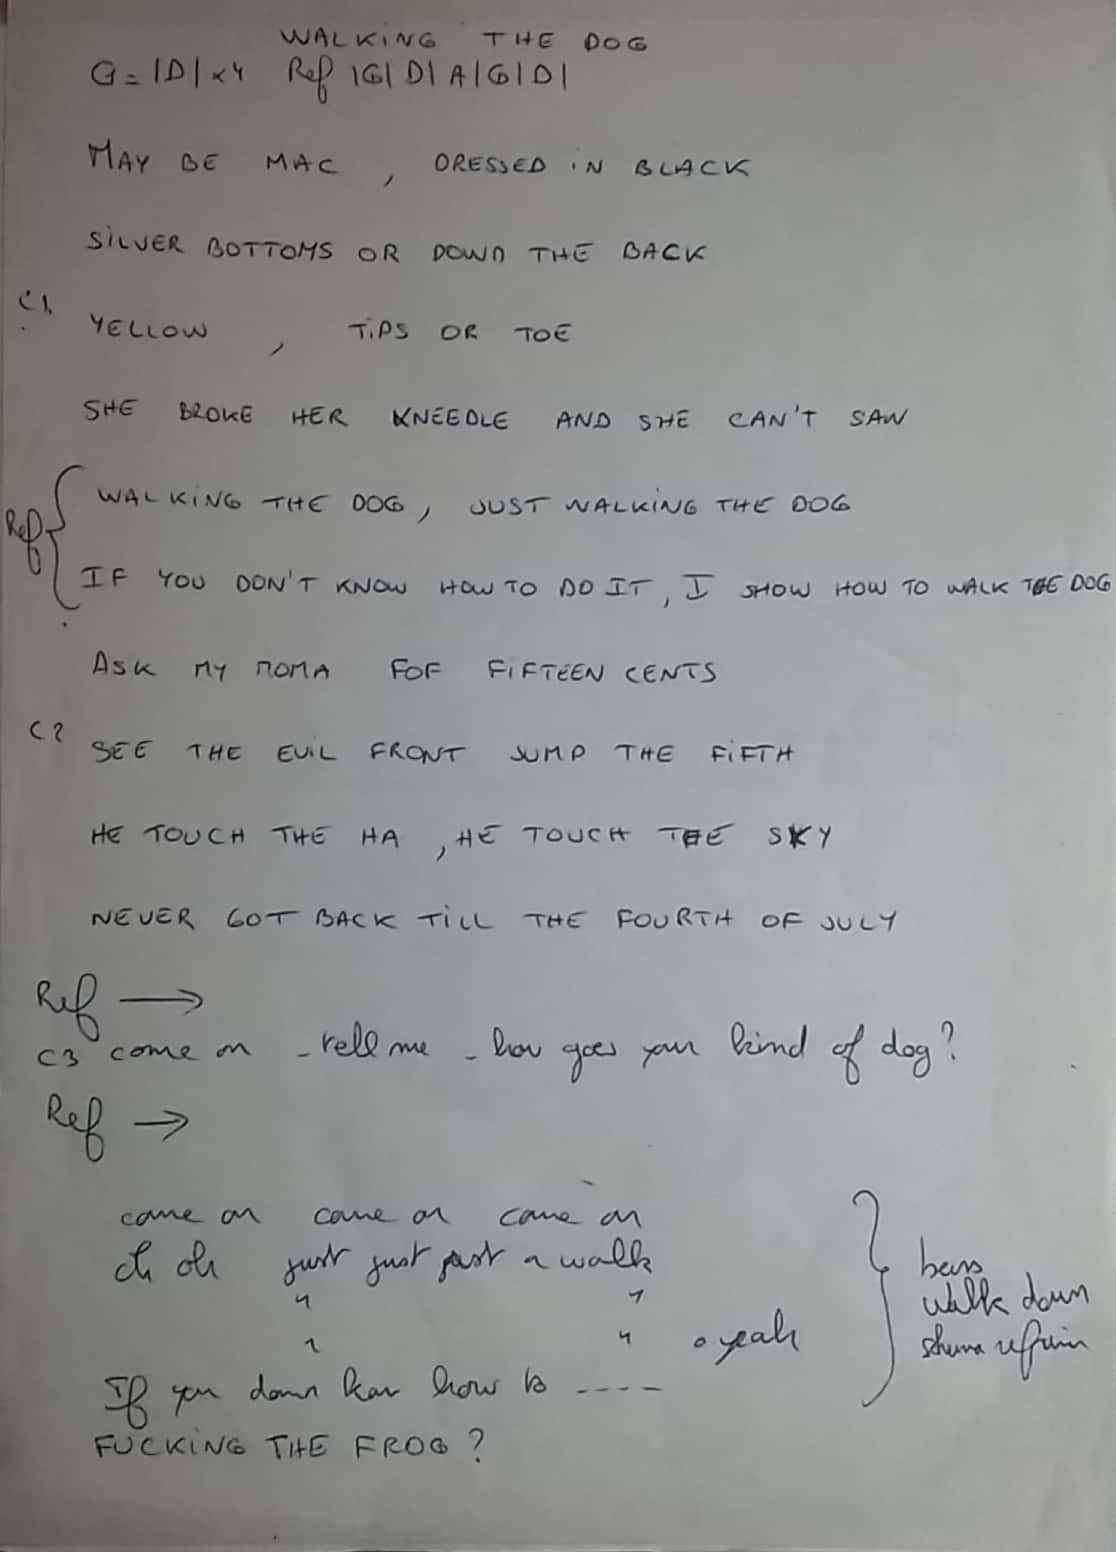 WALKING THE DOG
G = |D| x 4 Ref |G| D| A|G|D|
MAY BE MAC , DRESSED IN BLACK
SILVER BOTTOMS OR DOWN THE BACK
C1.
YELLOW , TIPS OR TOE
SHE BROKE HER KNEEDLE AND SHE CAN'T SAW
Ref { WALKING THE DOG, JUST WALKING THE DOG
IF YOU DON'T KNOW HOW TO DO IT, I SHOW HOW TO WALK THE DOG
ASK MY MOMA FOF FIFTEEN CENTS
C2
SEE THE EVIL FRONT JUMP THE FIFTH
HE TOUCH THE HA , HE TOUCH THE SKY
NEVER GOT BACK TILL THE FOURTH OF JULY
Ref →
C3 come on - tell me - how goes your kind of dog?
Ref →
come on come on come on
oh oh just just just a walk
" "
" " o yeah
If you down how to ----
FUCKING THE FROG?
} bass
walk down
refrain